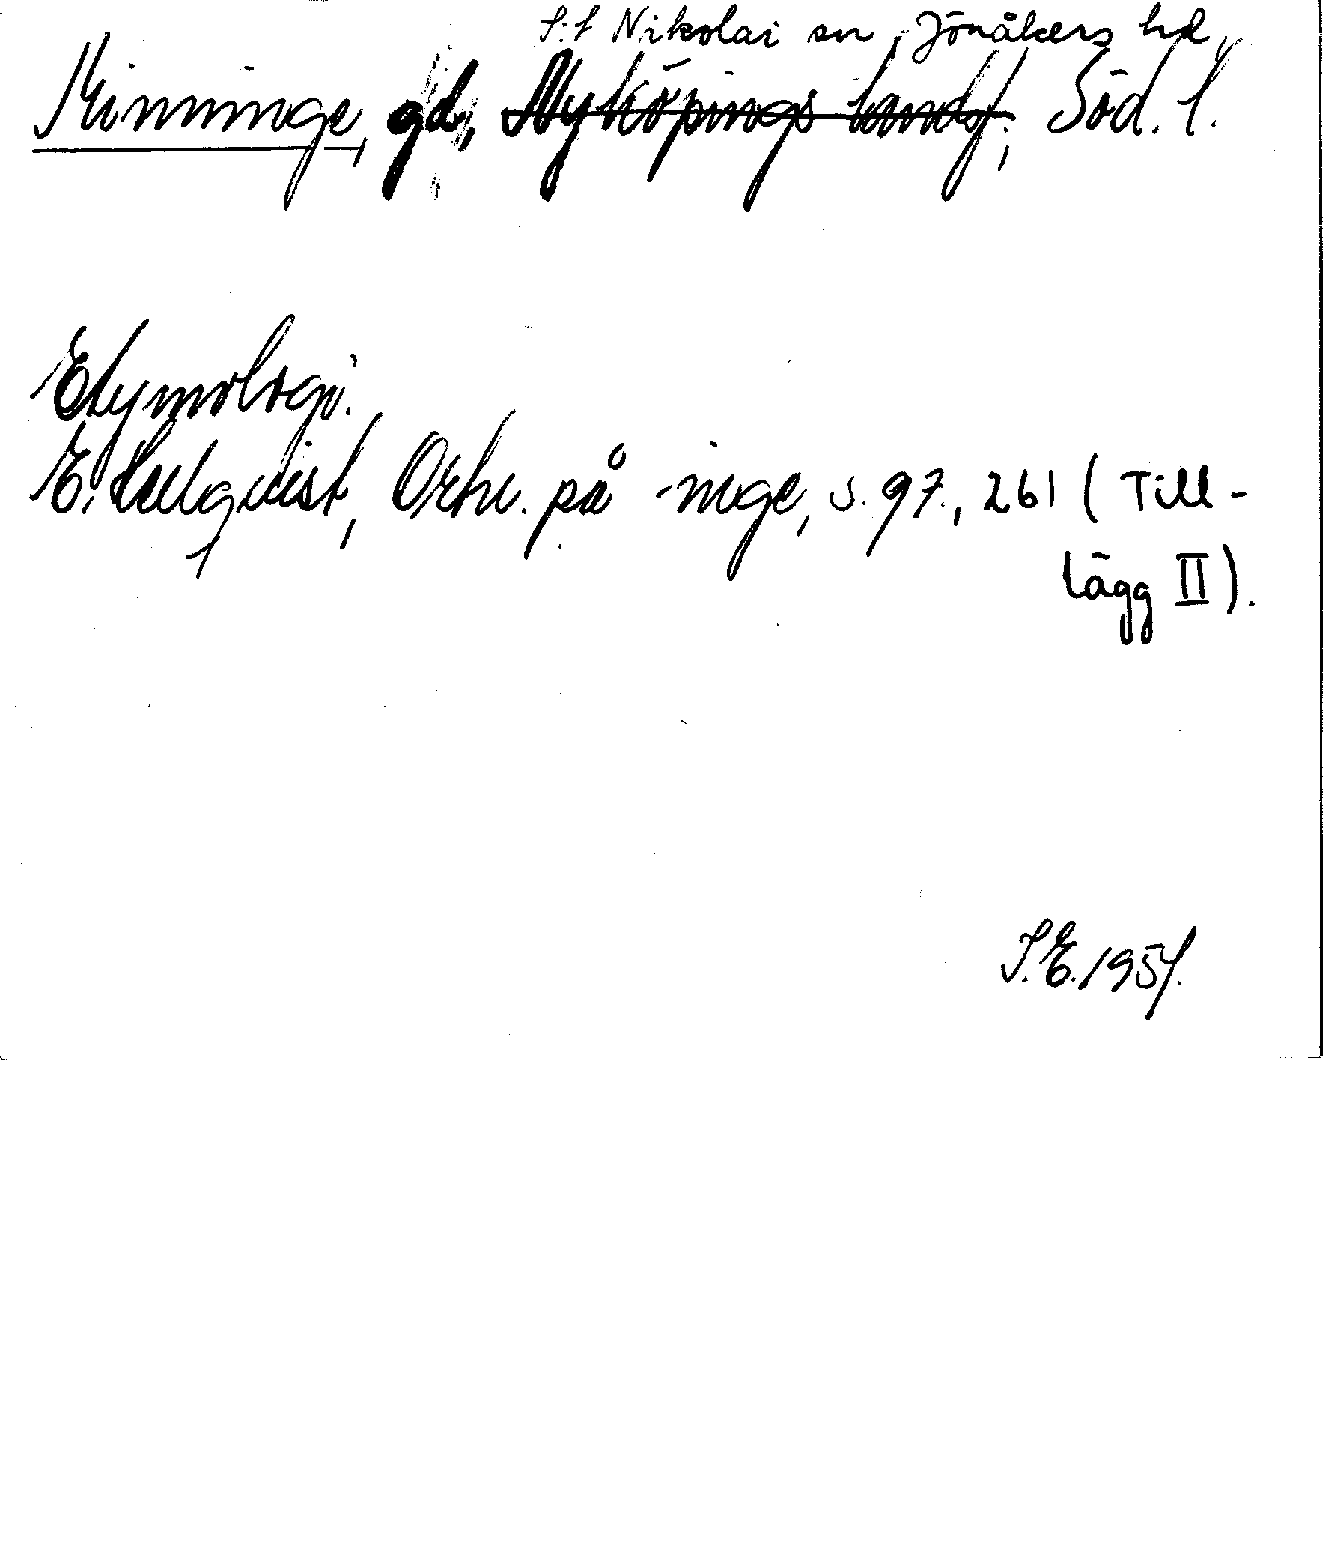 S:t Nikolai sn, Jönåkers hd,
Kinninge, gd, Nyköpings landsf., Söd. l.
Etymologi.
E. Hellquist, Ortn. på -inge, s. 97., 261 (Till-
lägg II).
S.E. 1951.